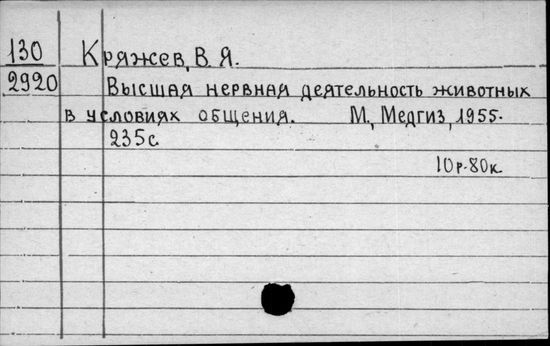 130 Кряжев, В. Я.
2920 Высшая нервная деятельность животных
в условиях общения. М., Медгиз, 1955.
235с.
10р.80к.